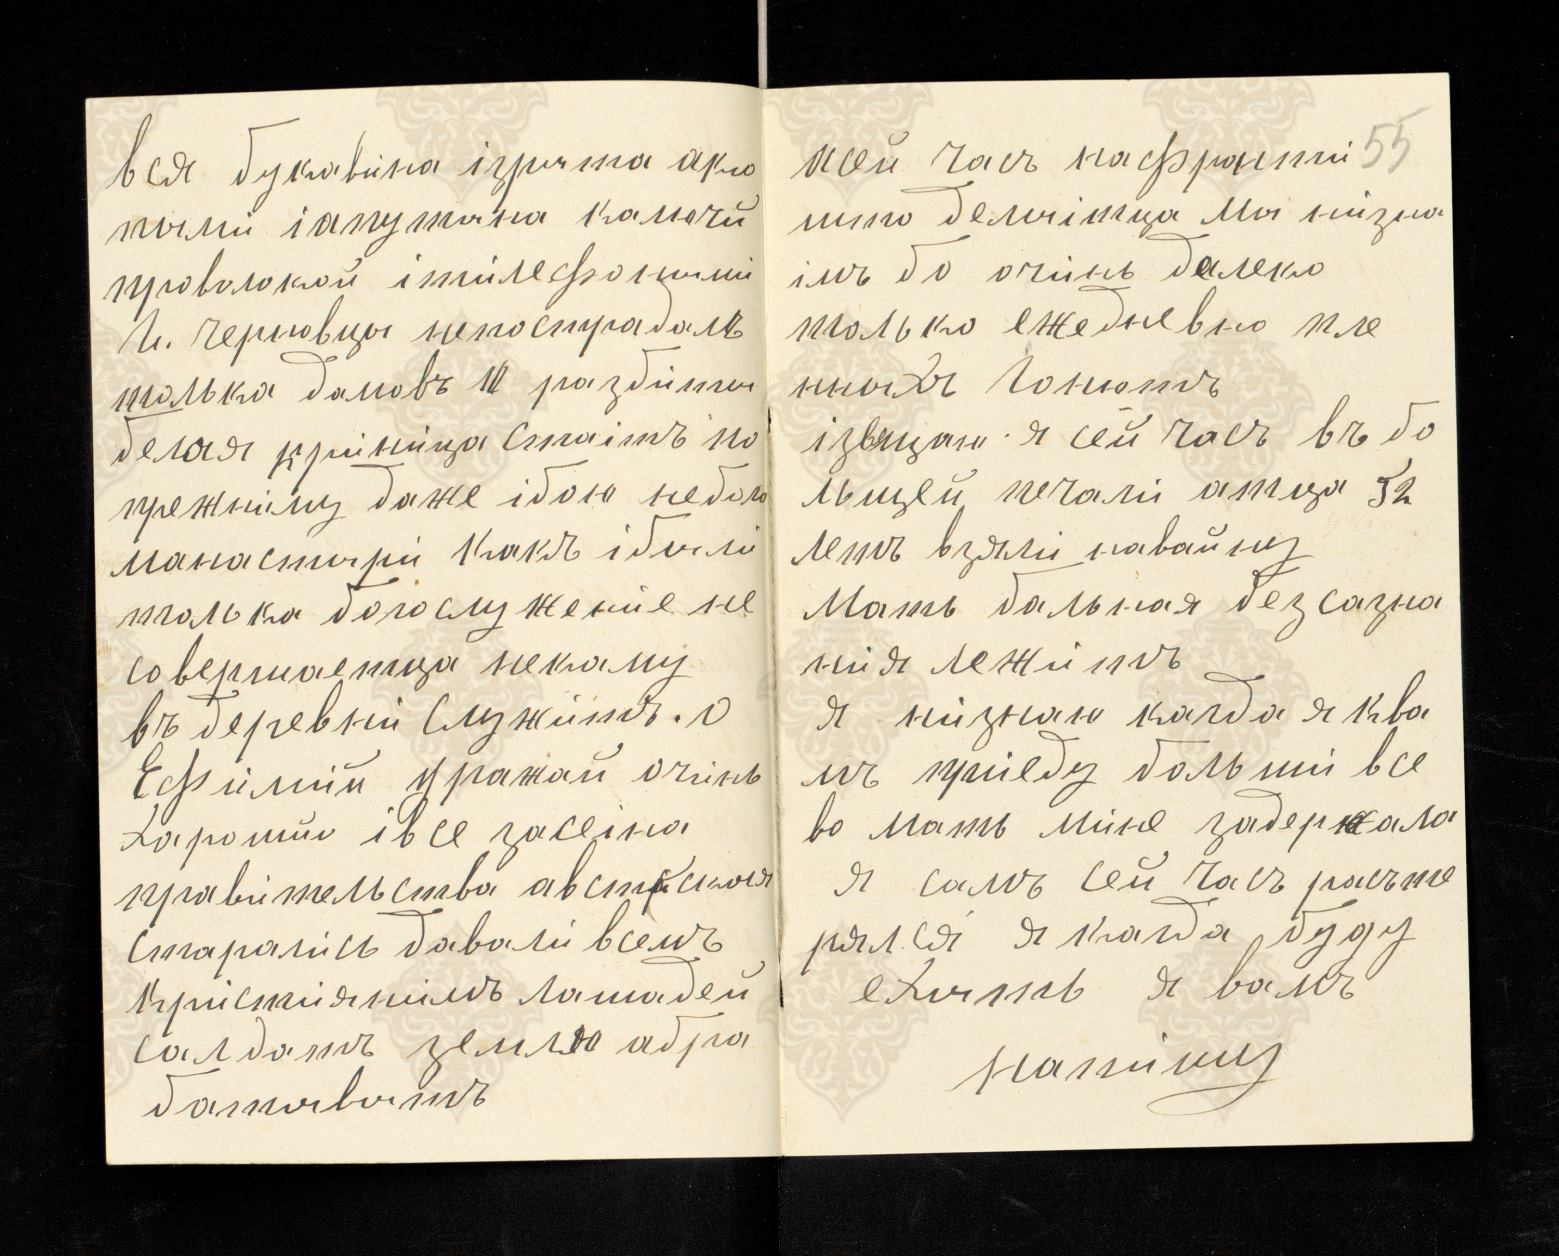 вся букавіна ізрыта око
пыми іапутана калючй
проволокой ітілефонымі
Г. черновцы непострадалъ
толька дамовъ разбиты
белая криніца стаитъ по
прежніму даже ібою небыло
манастыри какъ ібыли
толька богослужение не
совершаетца некаму
въ деревни служитъ. О
Ефимий уражай очинь
харошйо івсе засеіна
правительства австрская
старались давали всемъ
кристиянимъ лашадей
салдатъ землю абра
батыватъ
55
Ксей часъ нафронти
што делаітца мы нізна
імъ бо очинь далеко
только ежедневно пле
нныхъ гонютъ
ізвящаю я сей часъ въ бо
льщей печали атца 52
летъ взяли навайну
Мать бальная безсазна
ния лежитъ
я нізнаю кагда я Ква
мъ приеду больши все
во мать міне задержала
я самъ сей часъ расъте
рялся я кагда буду
ехыть я вамъ
напішу